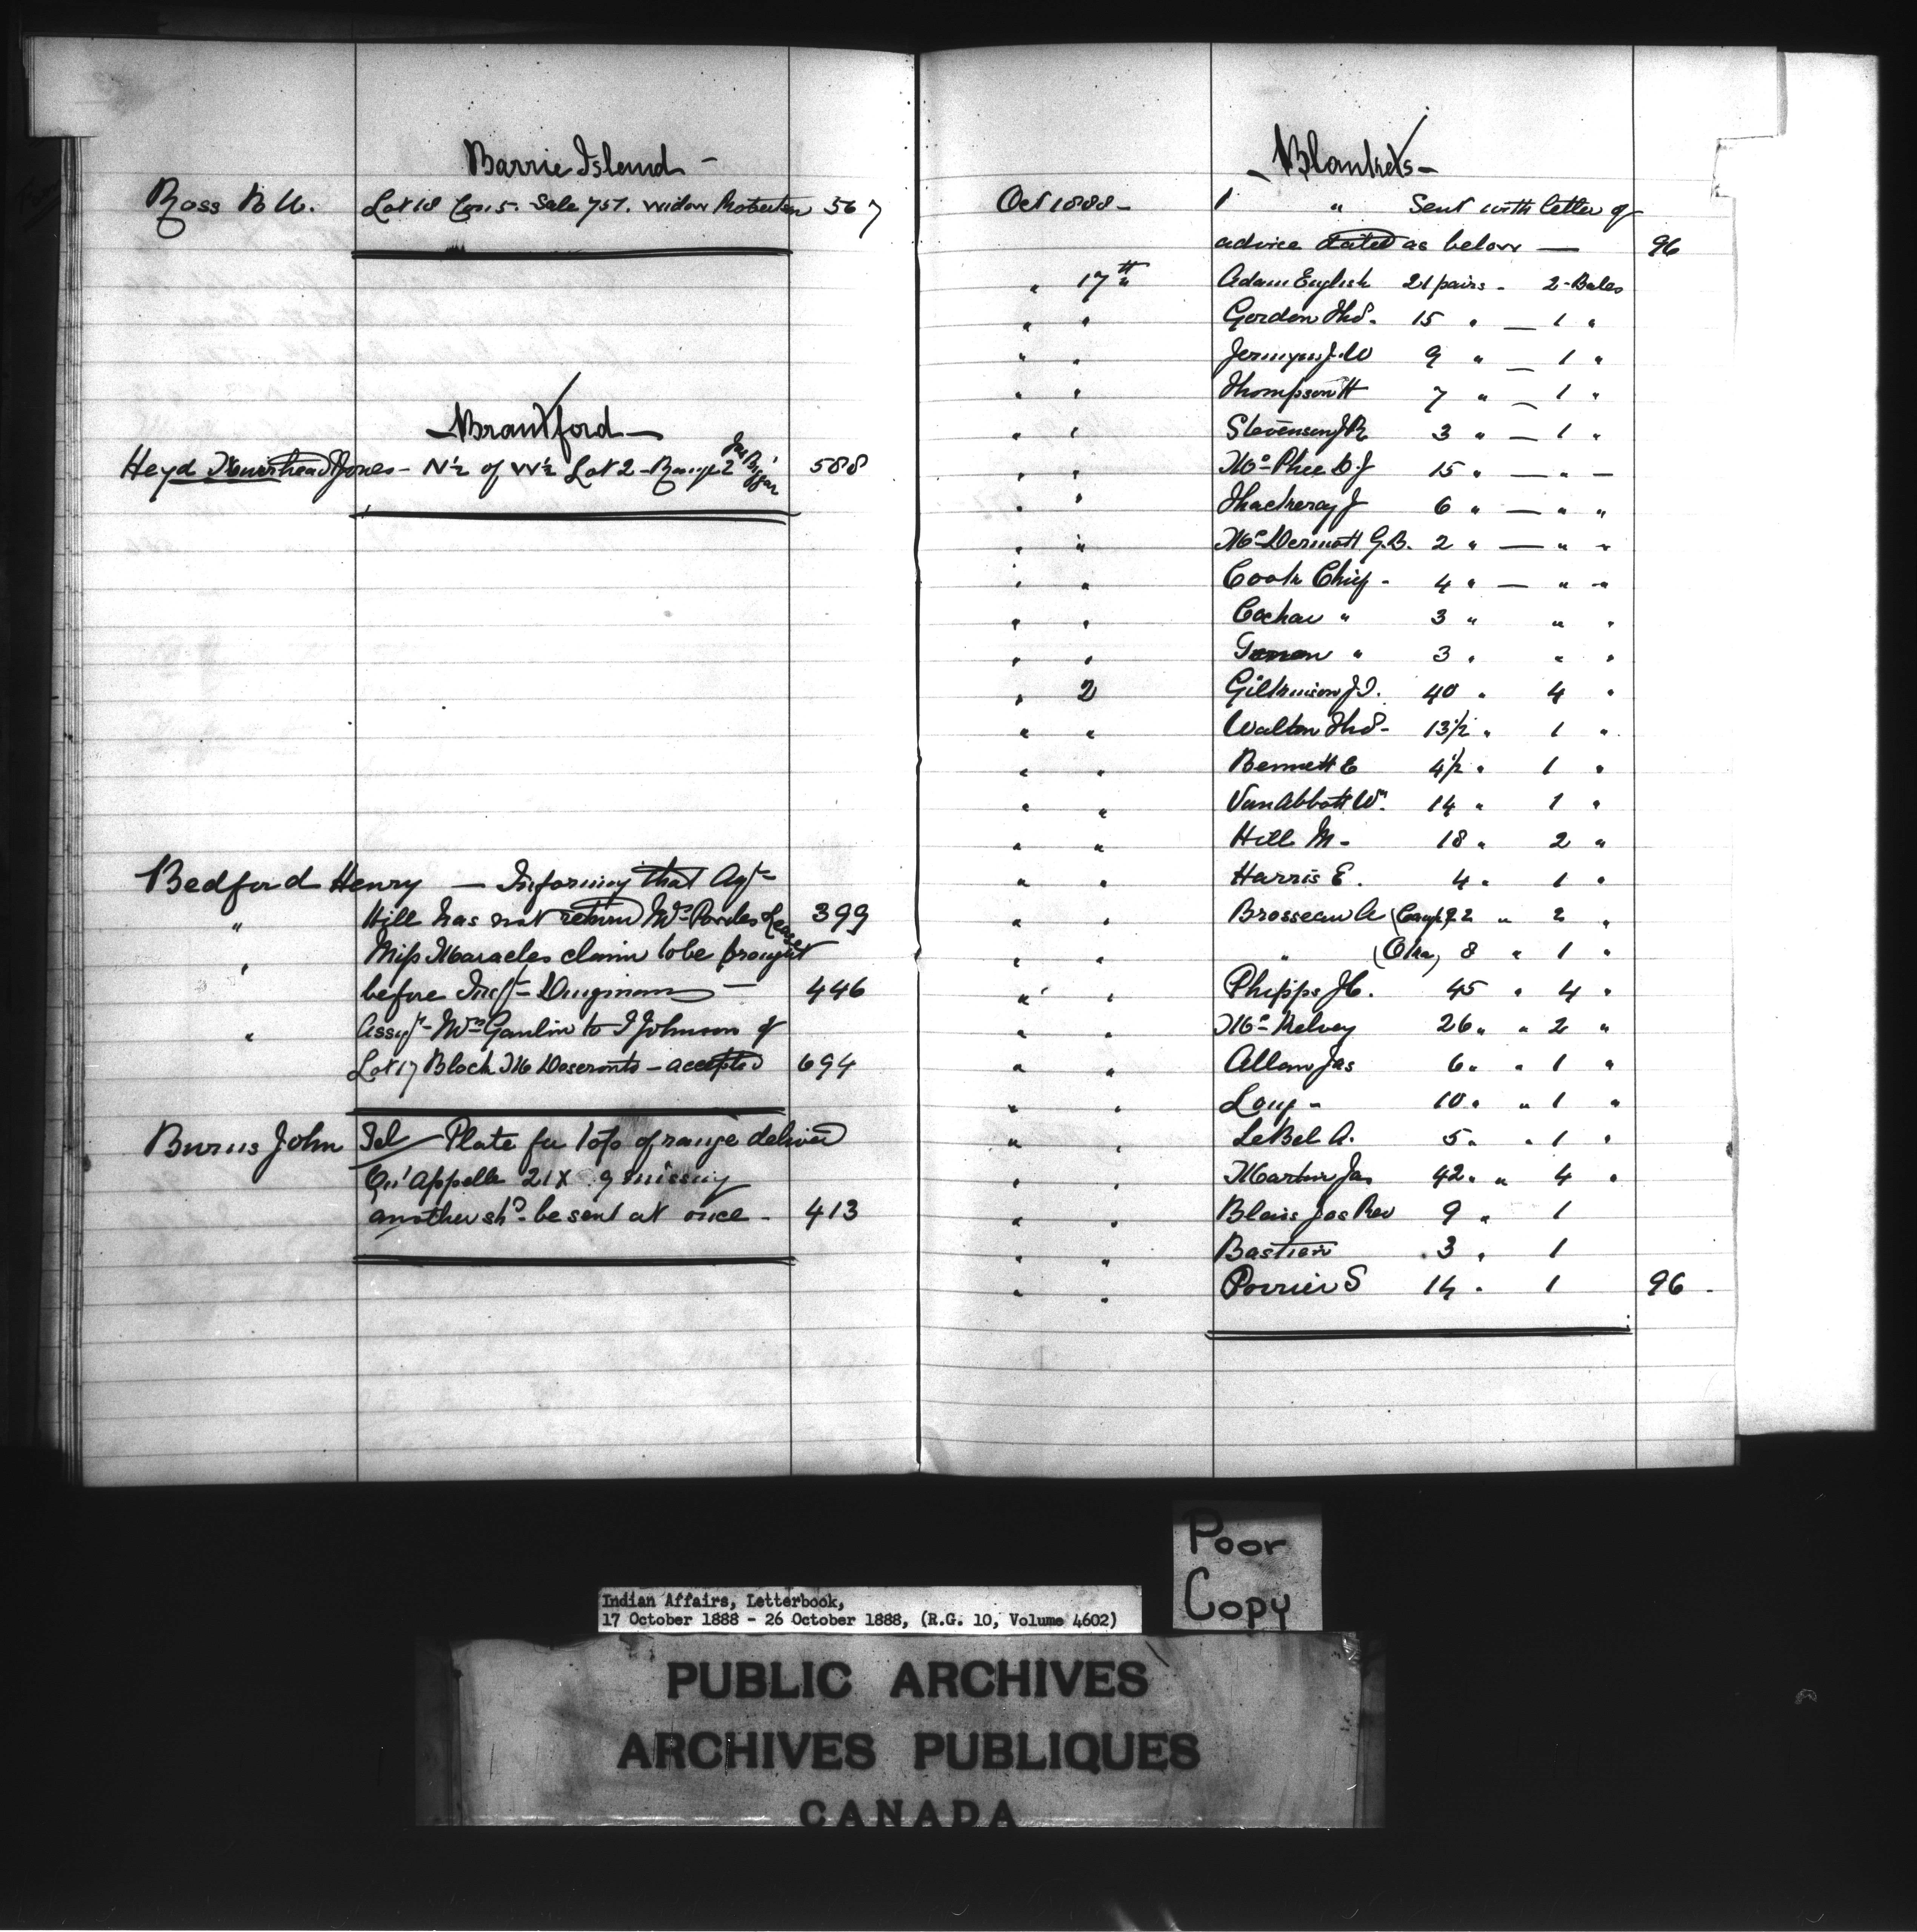 Barrie Island -
Ross B. W. Lot 18 Con 5. Sale 757. Widow Robertson 567
- Brantford -
Heyd Muirhead & Jones - N½ of W½ Lot 2 - Range 2 Jas Biggar 588
Bedford Henry - Informing that Agt
" Hill has not return Mrs Powles Lease 399
" Miss Maracles claim to be brought
before Inspt Dingman - 446
" Assgt - Wm Gaulin to I Johnson of
Lot 17 Block M Deseronto - accepted 694
Burns John Tel - Plate for top of range deliver
Qu'Appelle 21 X 9 missing
another shd be sent at once - 413
- Blankets -
Oct 1888 - 1 " Sent with letter of
advice dated as below - 96
" 17th Adam English 21 pairs - 2 - Bales
" " Gordon Thos. 15 " - 1 "
" " Jermyn J. W 9 " - 1 "
" " Thompson H 7 " - 1 "
" " Stevenson J R 3 " - 1 "
" " McPhee D. J 15 " - " -
" " Thackeray J 6 " - " "
" " McDermott G. B. 2 " - " "
" " Cook Chief - 4 " - " "
" " " 3 " " "
" " " 3 " " "
" 2 Gilkinson J. T. 40 " 4 "
" " Walton Thos - 13½ " 1 "
" " Bennett E 4½ " 1 "
" " Van Abbott Wm. 14 " 1 "
" " Hill M - 18 " 2 "
" " Harris E. 4 " 1 "
" " Brosseau A (Caugh) 22 " 2 "
" " " (Oka) 8 " 1 "
" " Phipps J C. 45 " 4 "
" " McKelvey 26 " " 2 "
" " Allan Jas 6 " " 1 "
" " Long - 10 " " 1 "
" " LeBel A. 5 " " 1 "
" " Martin Jas 42 " " 4 "
" " Blais Jos Rev 9 " 1
" " Bastien 3 " 1
" " Poirier S 14 " 1 96 -
Poor
Copy
Indian Affairs, Letterbook,
17 October 1888 - 26 October 1888, (R.G. 10, Volume 4602)
PUBLIC ARCHIVES
ARCHIVES PUBLIQUES
CANADA